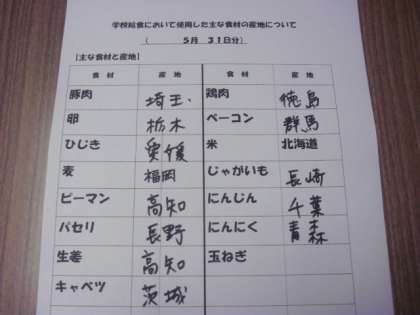 学校給食において使用した主な食材の産地について
( 5月 31日分)
[主な食材と産地]
食材 産地 食材 産地
豚肉 埼玉、 鶏肉 徳島
卵 栃木 ベーコン 群馬
ひじき 愛媛 米 北海道
麦 福岡 じゃがいも 長崎
ピーマン 高知 にんじん 千葉
パセリ 長野 にんにく 青森
生姜 高知 玉ねぎ
キャベツ 茨城